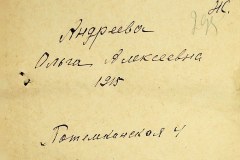 Ж.
Андреева
Ольга Алексеевна
1915
Потемкинская 4